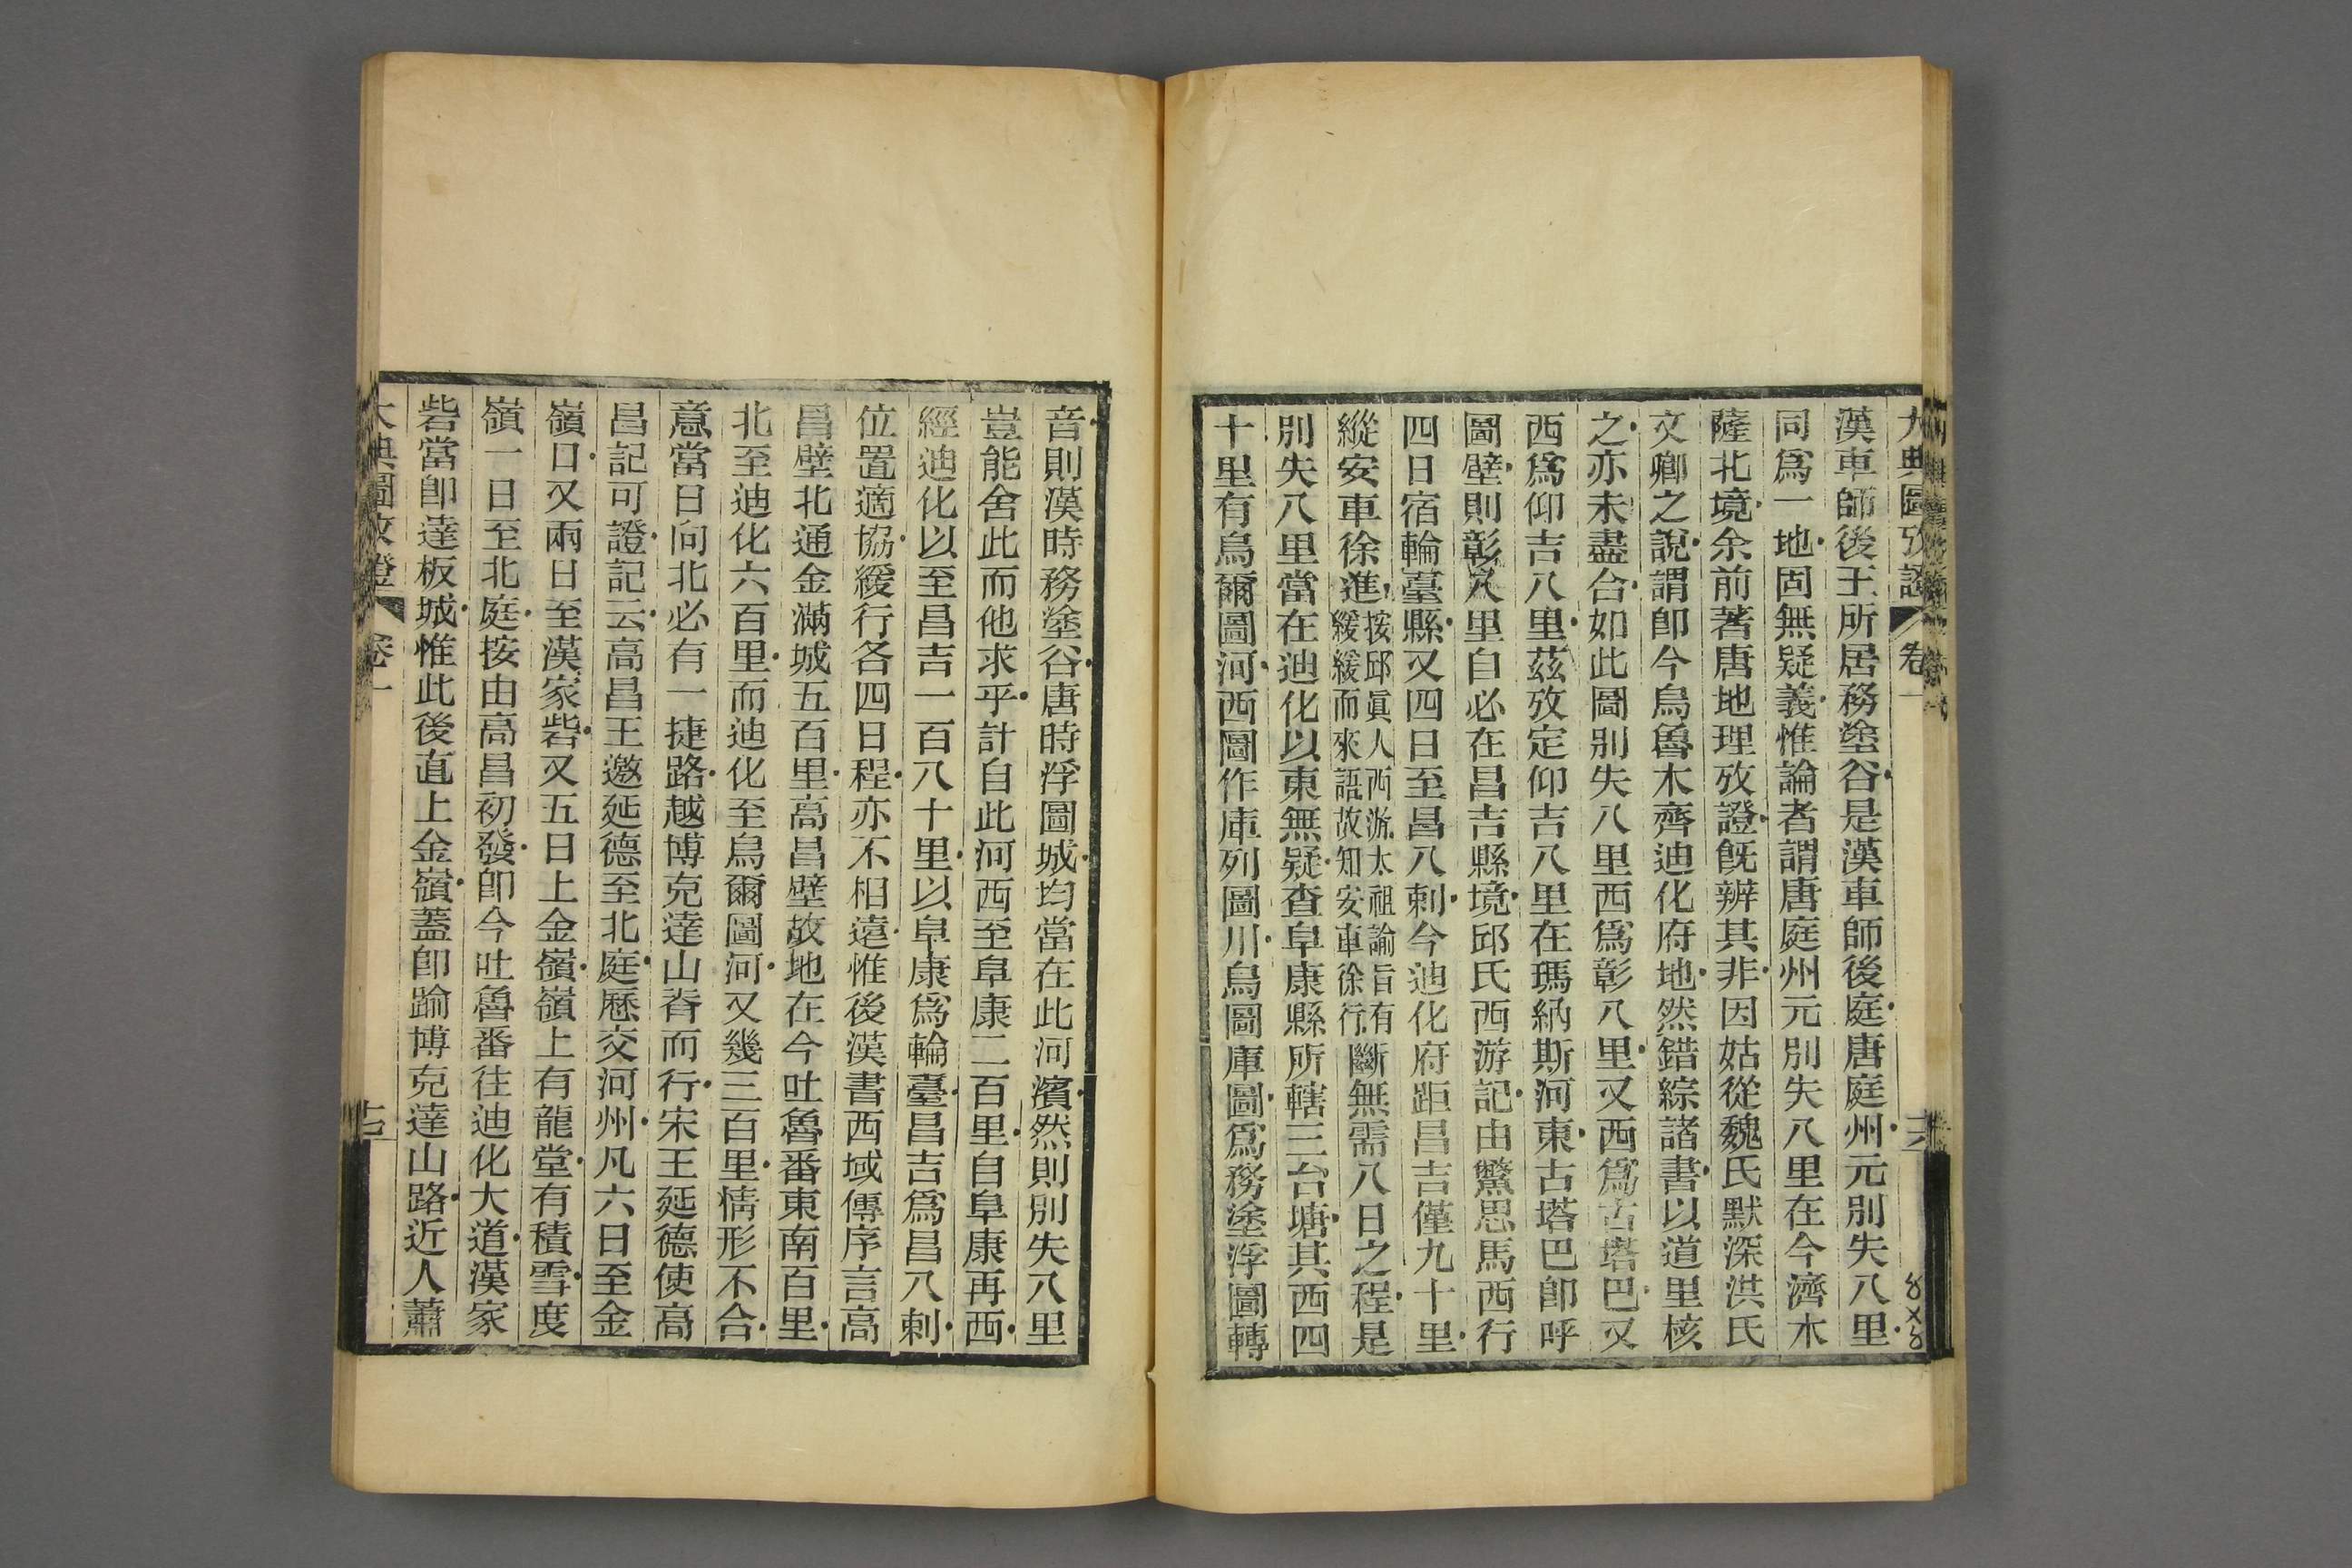 大典圖攷證 卷一 十六
漢車師後王所居務塗谷是漢車師後庭唐庭州元別失八里
同爲一地固無疑義惟論者謂唐庭州元別失八里在今濟木
薩北境余前著唐地理攷證旣辨其非因姑從魏氏默深洪氏
文卿之說謂卽今烏魯木齊迪化府地然錯綜諸書以道里核
之亦未盡合如此圖別失八里西爲彰八里又西爲古塔巴又
西爲仰吉八里茲攷定仰吉八里在瑪納斯河東古塔巴卽呼
圖壁則彰八里自必在昌吉縣境邱氏西游記由鱉思馬西行
四日宿輪臺縣又四日至昌八剌今迪化府距昌吉僅九十里
縱安車徐進按邱眞人西游太祖諭旨有緩緩而來語故知安車徐行斷無需八日之程是
別失八里當在迪化以東無疑查阜康縣所轄三台塘其西四
十里有烏爾圖河西圖作庫列圖川烏圖庫圖爲務塗浮圖轉
音則漢時務塗谷唐時浮圖城均當在此河濱然則別失八里
豈能舍此而他求乎計自此河西至阜康二百里自阜康再西
經迪化以至昌吉一百八十里以阜康爲輪臺昌吉爲昌八剌
位置適協緩行各四日程亦不相遠惟後漢書西域傳序言高
昌壁北通金滿城五百里高昌壁故地在今吐魯番東南百里
北至迪化六百里而迪化至烏爾圖河又幾三百里情形不合
意當日向北必有一捷路越博克達山脊而行宋王延德使高
昌記可證記云高昌王邀延德至北庭歷交河州凡六日至金
嶺口又兩日至漢家砦又五日上金嶺嶺上有龍堂有積雪度
嶺一日至北庭按由高昌初發卽今吐魯番往迪化大道漢家
砦當卽達板城惟此後直上金嶺蓋卽踰博克達山路近人蕭
大典圖攷證 卷一 十七